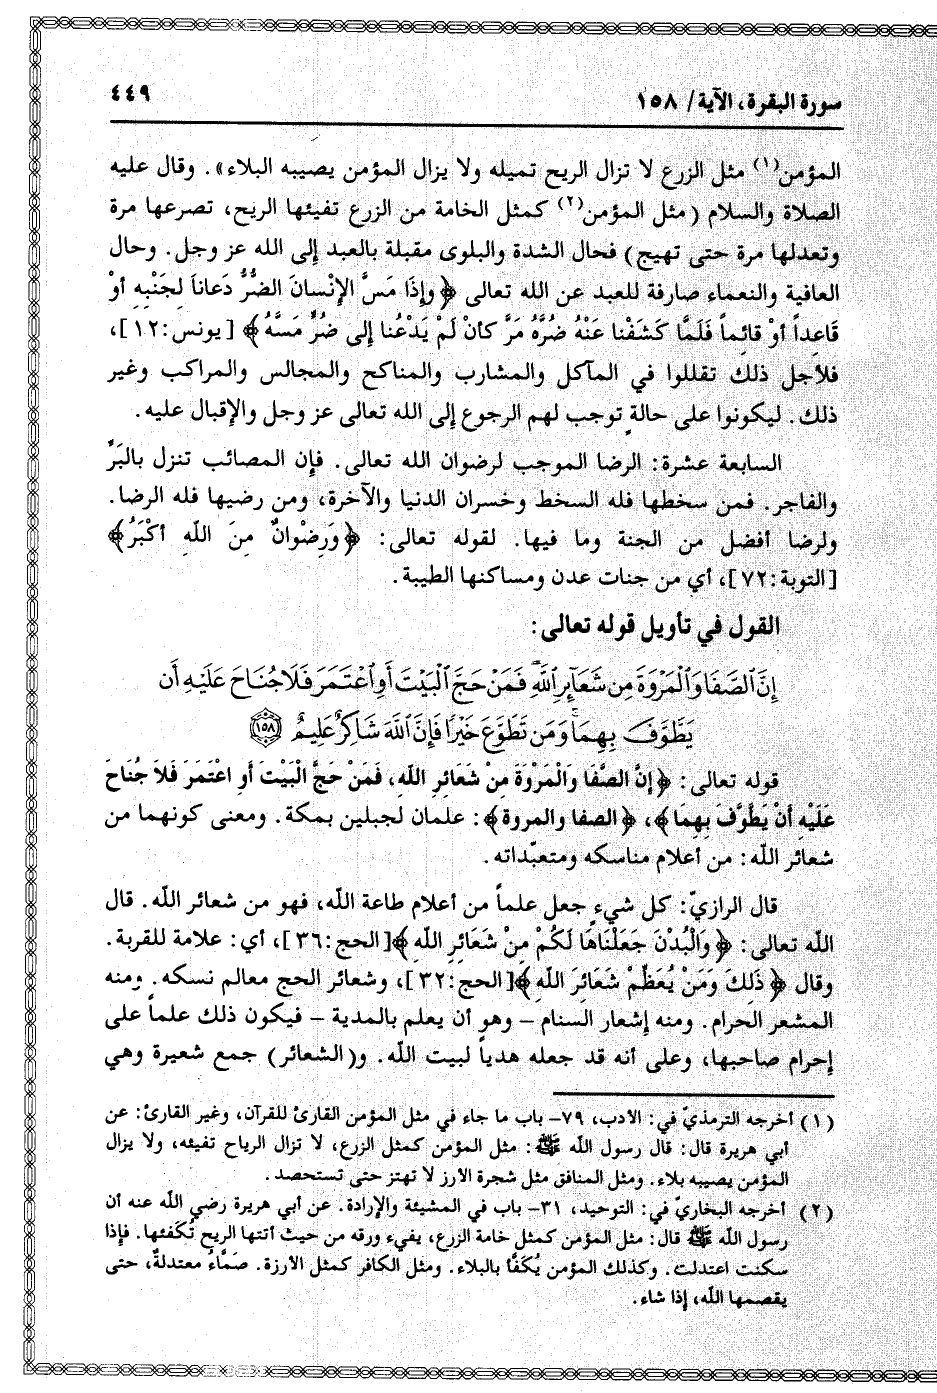 سورة البقرة، الآية/ ١٥٨
٤٤٩
المؤمن(١) مثل الزرع لا تزال الريح تميله ولا يزال المؤمن يصيبه البلاء». وقال عليه
الصلاة والسلام (مثل المؤمن(٢) كمثل الخامة من الزرع تفيئها الريح، تصرعها مرة
وتعدلها مرة حتى تهيج) فحال الشدة والبلوى مقبلة بالعبد إلى الله عز وجل. وحال
العافية والنعماء صارفة للعبد عن الله تعالى ﴿وإذَا مَسَّ الإنْسانَ الضُّرُّ دَعاناَ لِجَنْبِهِ أوْ
قَاعِداً أوْ قائِماً فَلَمَّا كَشَفْنا عَنْهُ ضُرَّهُ مَرَّ كأنْ لَمْ يَدْعُنا إلى ضُرٍّ مَسَّهُ﴾ [يونس:١٢]،
فلأجل ذلك تقللوا في المآكل والمشارب والمناكح والمجالس والمراكب وغير
ذلك. ليكونوا على حالةٍ توجب لهم الرجوع إلى الله تعالى عز وجل والإقبال عليه.
السابعة عشرة: الرضا الموجب لرضوان الله تعالى. فإن المصائب تنزل بالبَرِّ
والفاجر. فمن سخطها فله السخط وخسران الدنيا والآخرة، ومن رضيها فله الرضا.
ولرضا أفضل من الجنة وما فيها. لقوله تعالى: ﴿وَرِضْوانٌ مِنَ اللهِ أكْبَرُ﴾
[التوبة:٧٢]، أي من جنات عدن ومساكنها الطيبة.
القول في تأويل قوله تعالى:
إِنَّ ٱلصَّفَا وَٱلْمَرْوَةَ مِن شَعَآئِرِ ٱللَّهِۖ فَمَنْ حَجَّ ٱلْبَيْتَ أَوِ ٱعْتَمَرَ فَلَا جُنَاحَ عَلَيْهِ أَن
يَطَّوَّفَ بِهِمَاۚ وَمَن تَطَوَّعَ خَيْرًا فَإِنَّ ٱللَّهَ شَاكِرٌ عَلِيمٌ ﴿١٥٨﴾
قوله تعالى: ﴿إنَّ الصَّفَا وَالْمَرْوَةَ مِنْ شَعَائِرِ اللهِ، فَمَنْ حَجَّ الْبَيْتَ أوِ اعْتَمَرَ فَلاَ جُنَاحَ
عَلَيْهِ أنْ يَطَّوَّفَ بِهِمَا﴾، ﴿الصفا والمروة﴾: علمان لجبلين بمكة. ومعنى كونهما من
شعائر اللّه: من أعلام مناسكه ومتعبّداته.
قال الرازيّ: كل شيءٍ جعل علماً من أعلام طاعة اللّه، فهو من شعائر اللّه. قال
اللّه تعالى: ﴿وَالْبُدْنَ جَعَلْنَاهَا لَكُمْ مِنْ شَعَائِرِ اللّهِ﴾[الحج:٣٦]، أي: علامة للقربة.
وقال ﴿ذَلِكَ وَمَنْ يُعَظِّمْ شَعَائِرَ اللّهِ﴾[الحج:٣٢]، وشعائر الحج معالم نسكه. ومنه
المشعر الحرام. ومنه إشعار السنام – وهو أن يعلم بالمدية – فيكون ذلك علماً على
إحرام صاحبها، وعلى أنه قد جعله هدياً لبيت اللّه. و(الشعائر) جمع شعيرة وهي
(١) أخرجه الترمذيّ في: الأدب، ٧٩- باب ما جاء في مثل المؤمن القارئ للقرآن، وغير القارئ: عن
أبي هريرة قال: قال رسول اللّه ﷺ: مثل المؤمن كمثل الزرع، لا تزال الرياح تفيئه، ولا يزال
المؤمن يصيبه بلاء. ومثل المنافق مثل شجرة الأرز لا تهتز حتى تستحصد.
(٢) أخرجه البخاريّ في: التوحيد، ٣١- باب في المشيئة والإرادة. عن أبي هريرة رضي اللّه عنه أن
رسول اللّه ﷺ قال: مثل المؤمن كمثل خامة الزرع، يفيء ورقه من حيث أتتها الريح تُكَفئها. فإذا
سكنت اعتدلت. وكذلك المؤمن يُكَفَّأ بالبلاء. ومثل الكافر كمثل الأرزة. صَمَّاءَ معتدلةً، حتى
يقصمها اللّه، إذا شاء.